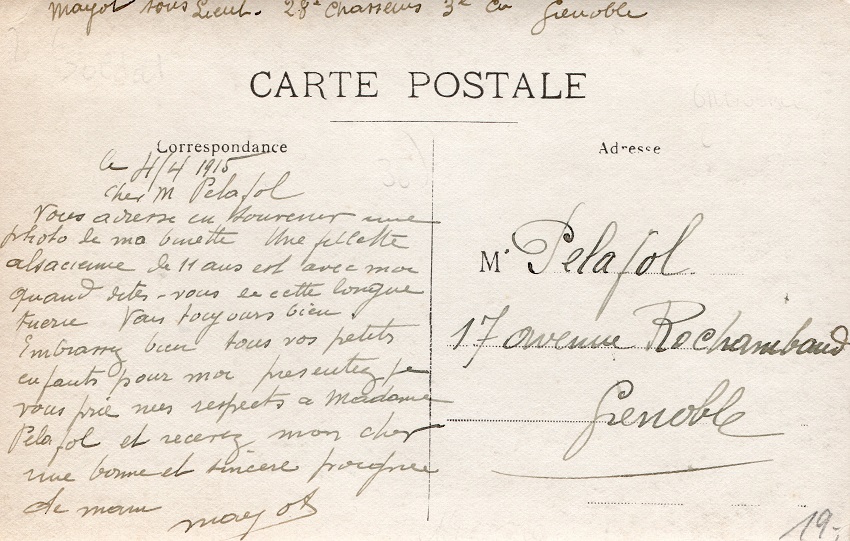 Mayot sous Lieut. 28e Chasseurs 3e Cie Grenoble
CARTE POSTALE
Correspondance
Adresse
Le 4/4 1915
Cher M Pelafol
Vous adresse en souvenir une
photo de ma binette Une fillette
alsacienne de 11 ans est avec moi
quand dites-vous de cette longue
tuerie Vais toujours bien.
Embrassez bien tous vos petits
enfants pour moi presentez je
vous prie mes respects a Madame
Pelafol et recevez mon cher
une bonne et sincere poignee
de main
Mayot
Mr Pelafol
17 avenue Rochambaud
Grenoble
19-